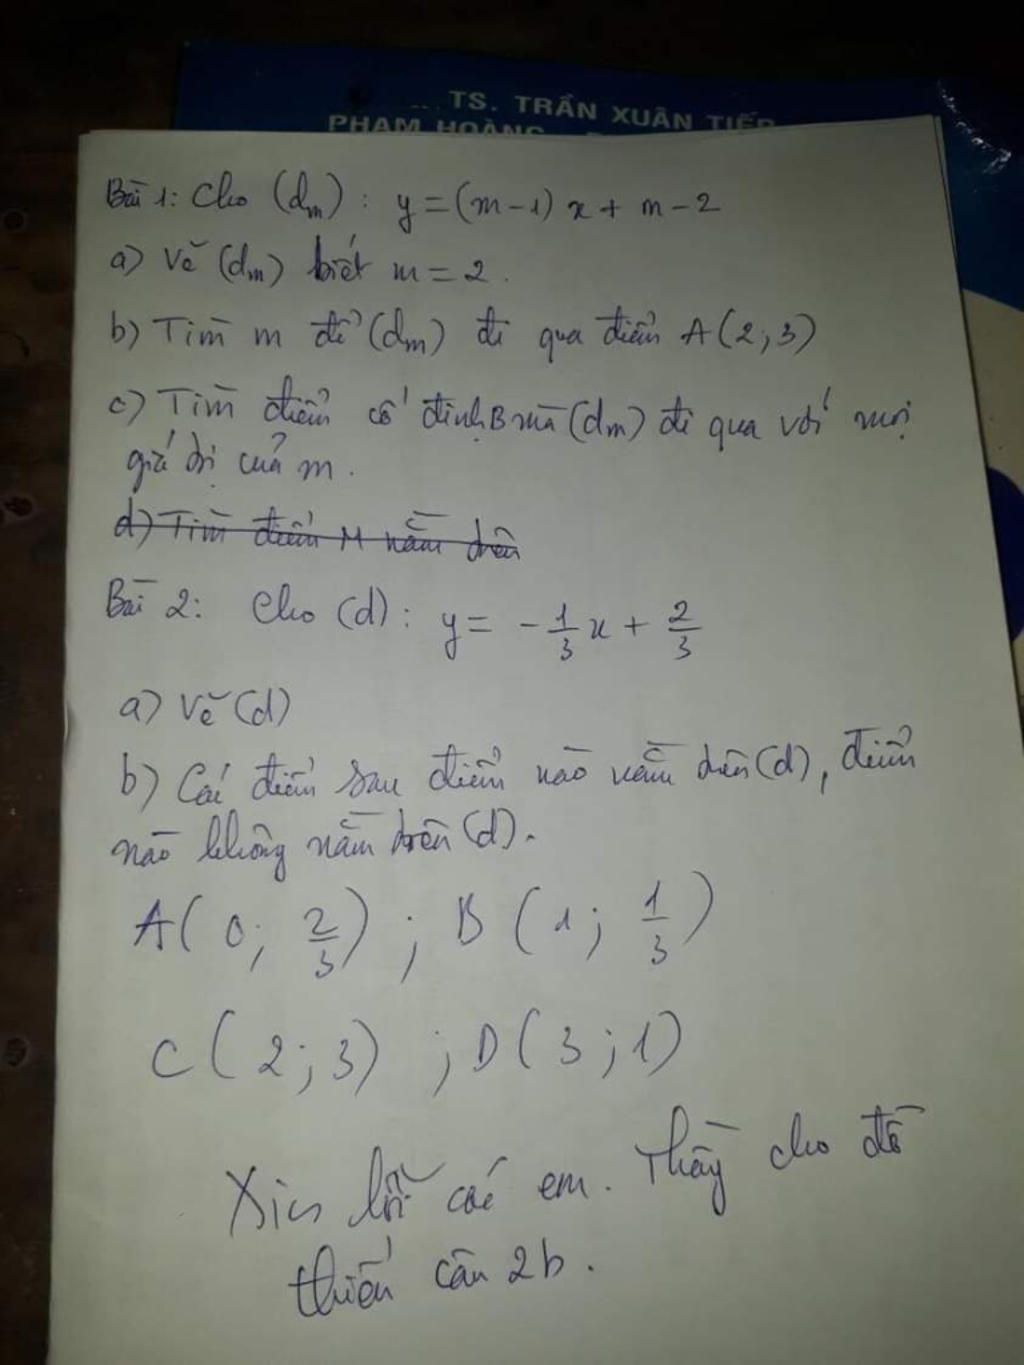 TS. TRẦN XUÂN TIẾP
PHẠM HOÀNG
Bài 1: Cho (dm): y = (m-1) x + m - 2
a) Vẽ (dm) biết m = 2.
b) Tìm m để (dm) đi qua điểm A(2;3)
c) Tìm điểm cố định B mà (dm) đi qua với mọi
giá trị của m.
d) Tìm điểm M nằm trên
Bài 2: Cho (d): y = - 1/3 x + 2/3
a) Vẽ (d)
b) Các điểm sau điểm nào nằm trên (d), điểm
nào không nằm trên (d).
A( 0; 2/3 ) ; B ( 1; 1/3 )
C ( 2; 3) ; D ( 3 ; 1)
Xin lỗi các em. Thầy cho đề
thiếu câu 2b.